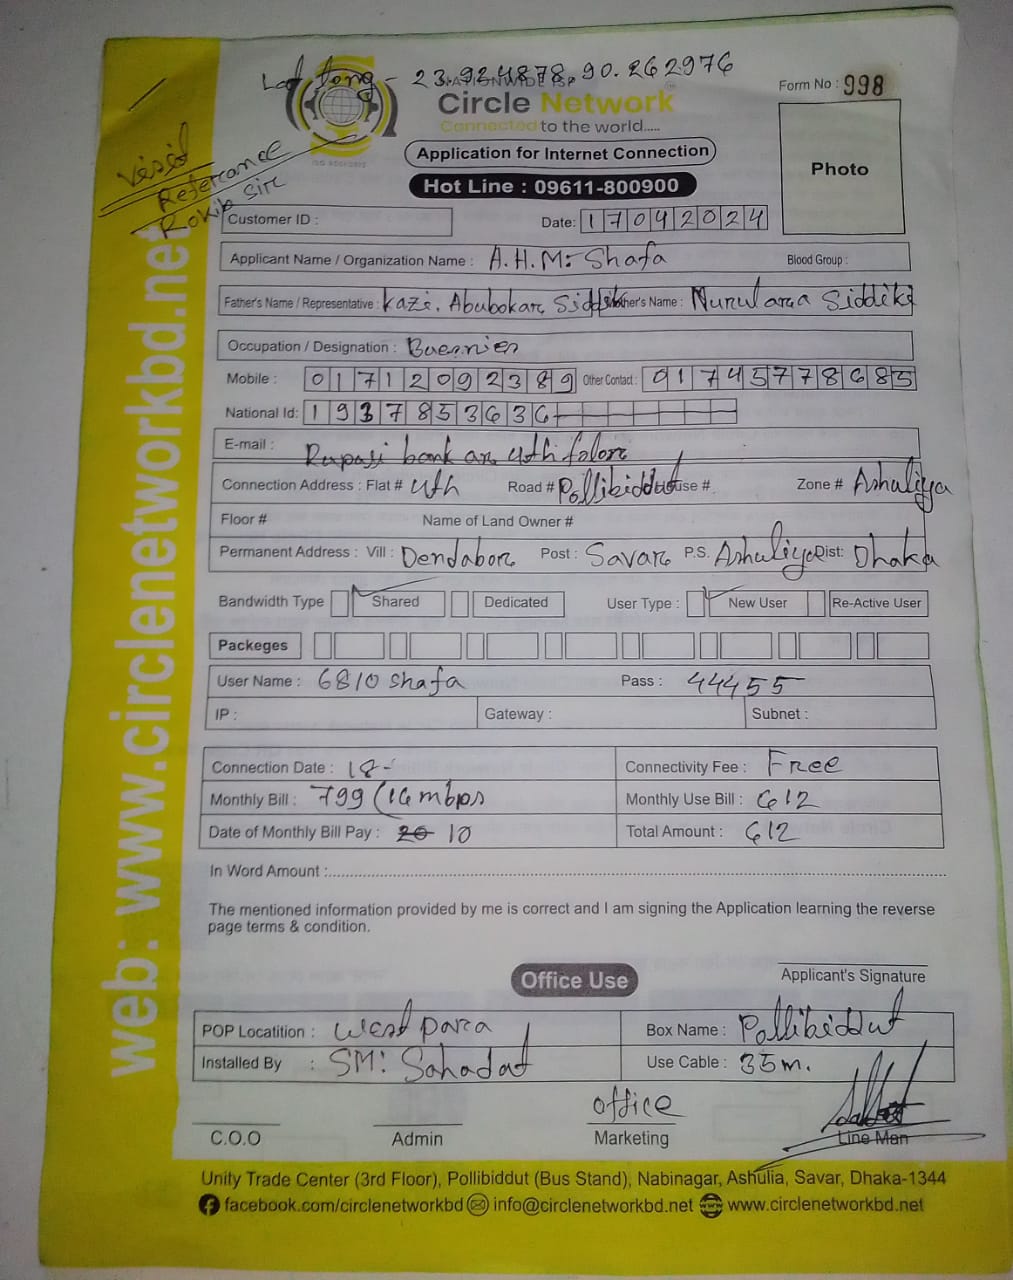 Lat Long - 23.924878, 90.262976
NATIONWIDE ISP
Form No : 998
Circle Network
Connected to the world.....
Application for Internet Connection
Photo
Hot Line : 09611-800900
Visit
Referance
Rokib Sir
Customer ID :
Date: 17042024
Applicant Name / Organization Name : A.H.M: Shafa Blood Group :
Father's Name / Representative : Kazi. Abubokar Siddik Mother's Name : Nurul ara Siddiki
Occupation / Designation :
Mobile : 01712092389 Other Contact : 01745778685
National Id: 1937853636
E-mail : Rupali bank ar 4th folore
Connection Address : Flat # 4th Road # Pollibiddut House # Zone # Ashuliya
Floor # Name of Land Owner #
Permanent Address : Vill : Dendabor Post : Savar P.S. Ashuliya Dist: Dhaka
Bandwidth Type Shared Dedicated User Type : New User Re-Active User
Packeges
User Name : 6810 shafa Pass : 44455
IP : Gateway : Subnet :
Connection Date : 18- Connectivity Fee : Free
Monthly Bill : 799 (16 mbps Monthly Use Bill : 612
Date of Monthly Bill Pay : 20 10 Total Amount : 612
In Word Amount :
The mentioned information provided by me is correct and I am signing the Application learning the reverse
page terms & condition.
Applicant's Signature
Office Use
POP Locatition : West para Box Name : Pollibiddut
Installed By : SM: Sahadat Use Cable : 35m.
office
C.O.O Admin Marketing Line Man
Unity Trade Center (3rd Floor), Pollibiddut (Bus Stand), Nabinagar, Ashulia, Savar, Dhaka-1344
facebook.com/circlenetworkbd info@circlenetworkbd.net www.circlenetworkbd.net
web: www.circlenetworkbd.net